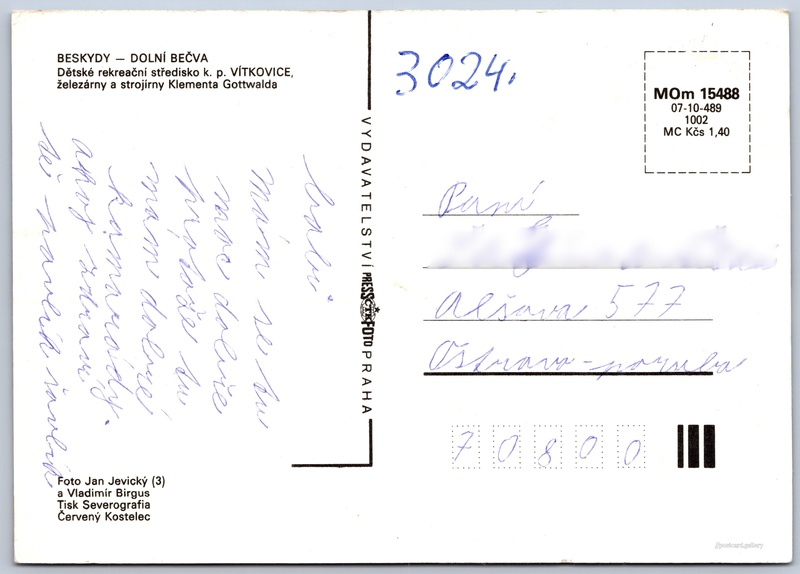 BESKYDY — DOLNÍ BEČVA
Dětské rekreační středisko k. p. VÍTKOVICE,
železárny a strojírny Klementa Gottwalda
babi
mám se tu
moc dobře
protože tu
mám dobré
kamarády.
ahoj zdraví
tě pavlík
Foto Jan Jevický (3)
a Vladimír Birgus
Tisk Severografia
Červený Kostelec
VYDAVATELSTVÍ PRESSFOTO PRAHA
ČTK
3024.
MOm 15488
07-10-489
1002
MC Kčs 1,40
Paní
Alšova 577
Ostrava-poruba
70800
//postcard.gallery